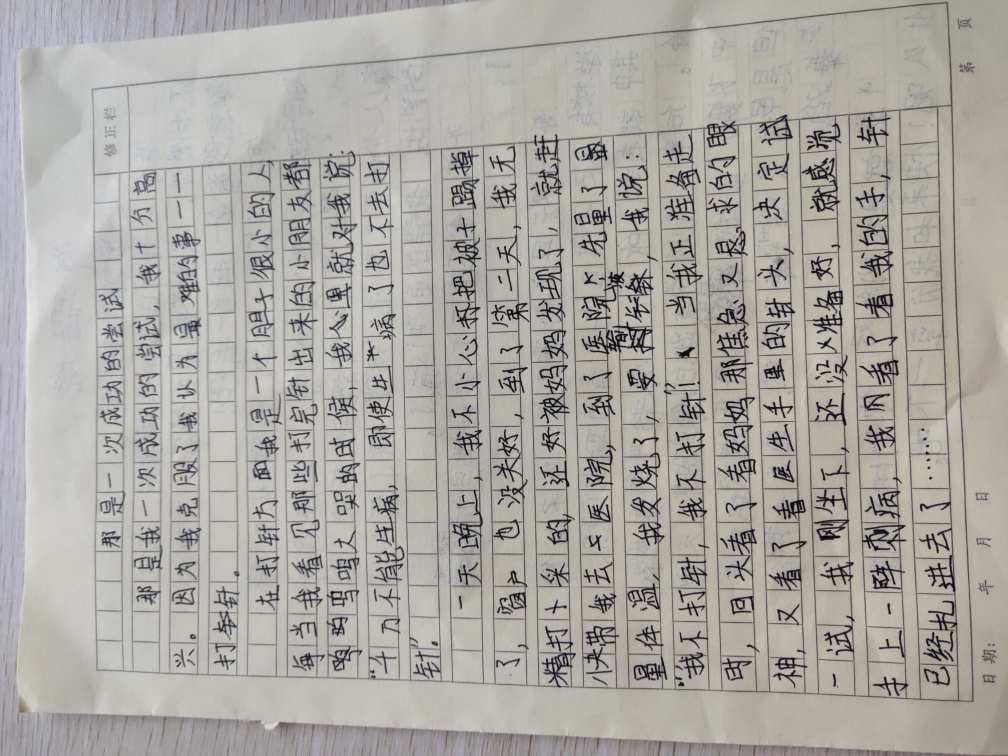 修正栏
那是一次成功的尝试
那是我一次成功的尝试，我十分高
兴。因为我克服了我认为最难的事——
打针。
在打针方面我是一个胆子很小的人，
每当我看见那些打完针出来的小朋友都
呜呜呜大哭的时候，我心里就对我说：
“千万不能生病，即使生病了也不去打
针”。
一天晚上，我不小心把被子踢掉
了，窗户也没关好，到了第二天，我无
精打采的，还好被妈妈发现了，就赶
快带我去医院，到了医院，先量了量
量体温，我发烧了，要打针，我说：
“我不打针，我不打针！”当我正准备走
时，回头看了看妈妈那焦急又恳求的眼
神，又看了看医生手里的针头，决定试
一试，我刚坐下，还没准备好，就感觉
手上一阵刺痛，我再看了看我的手，针
已经扎进去了……
日期： 年 月 日
第 页